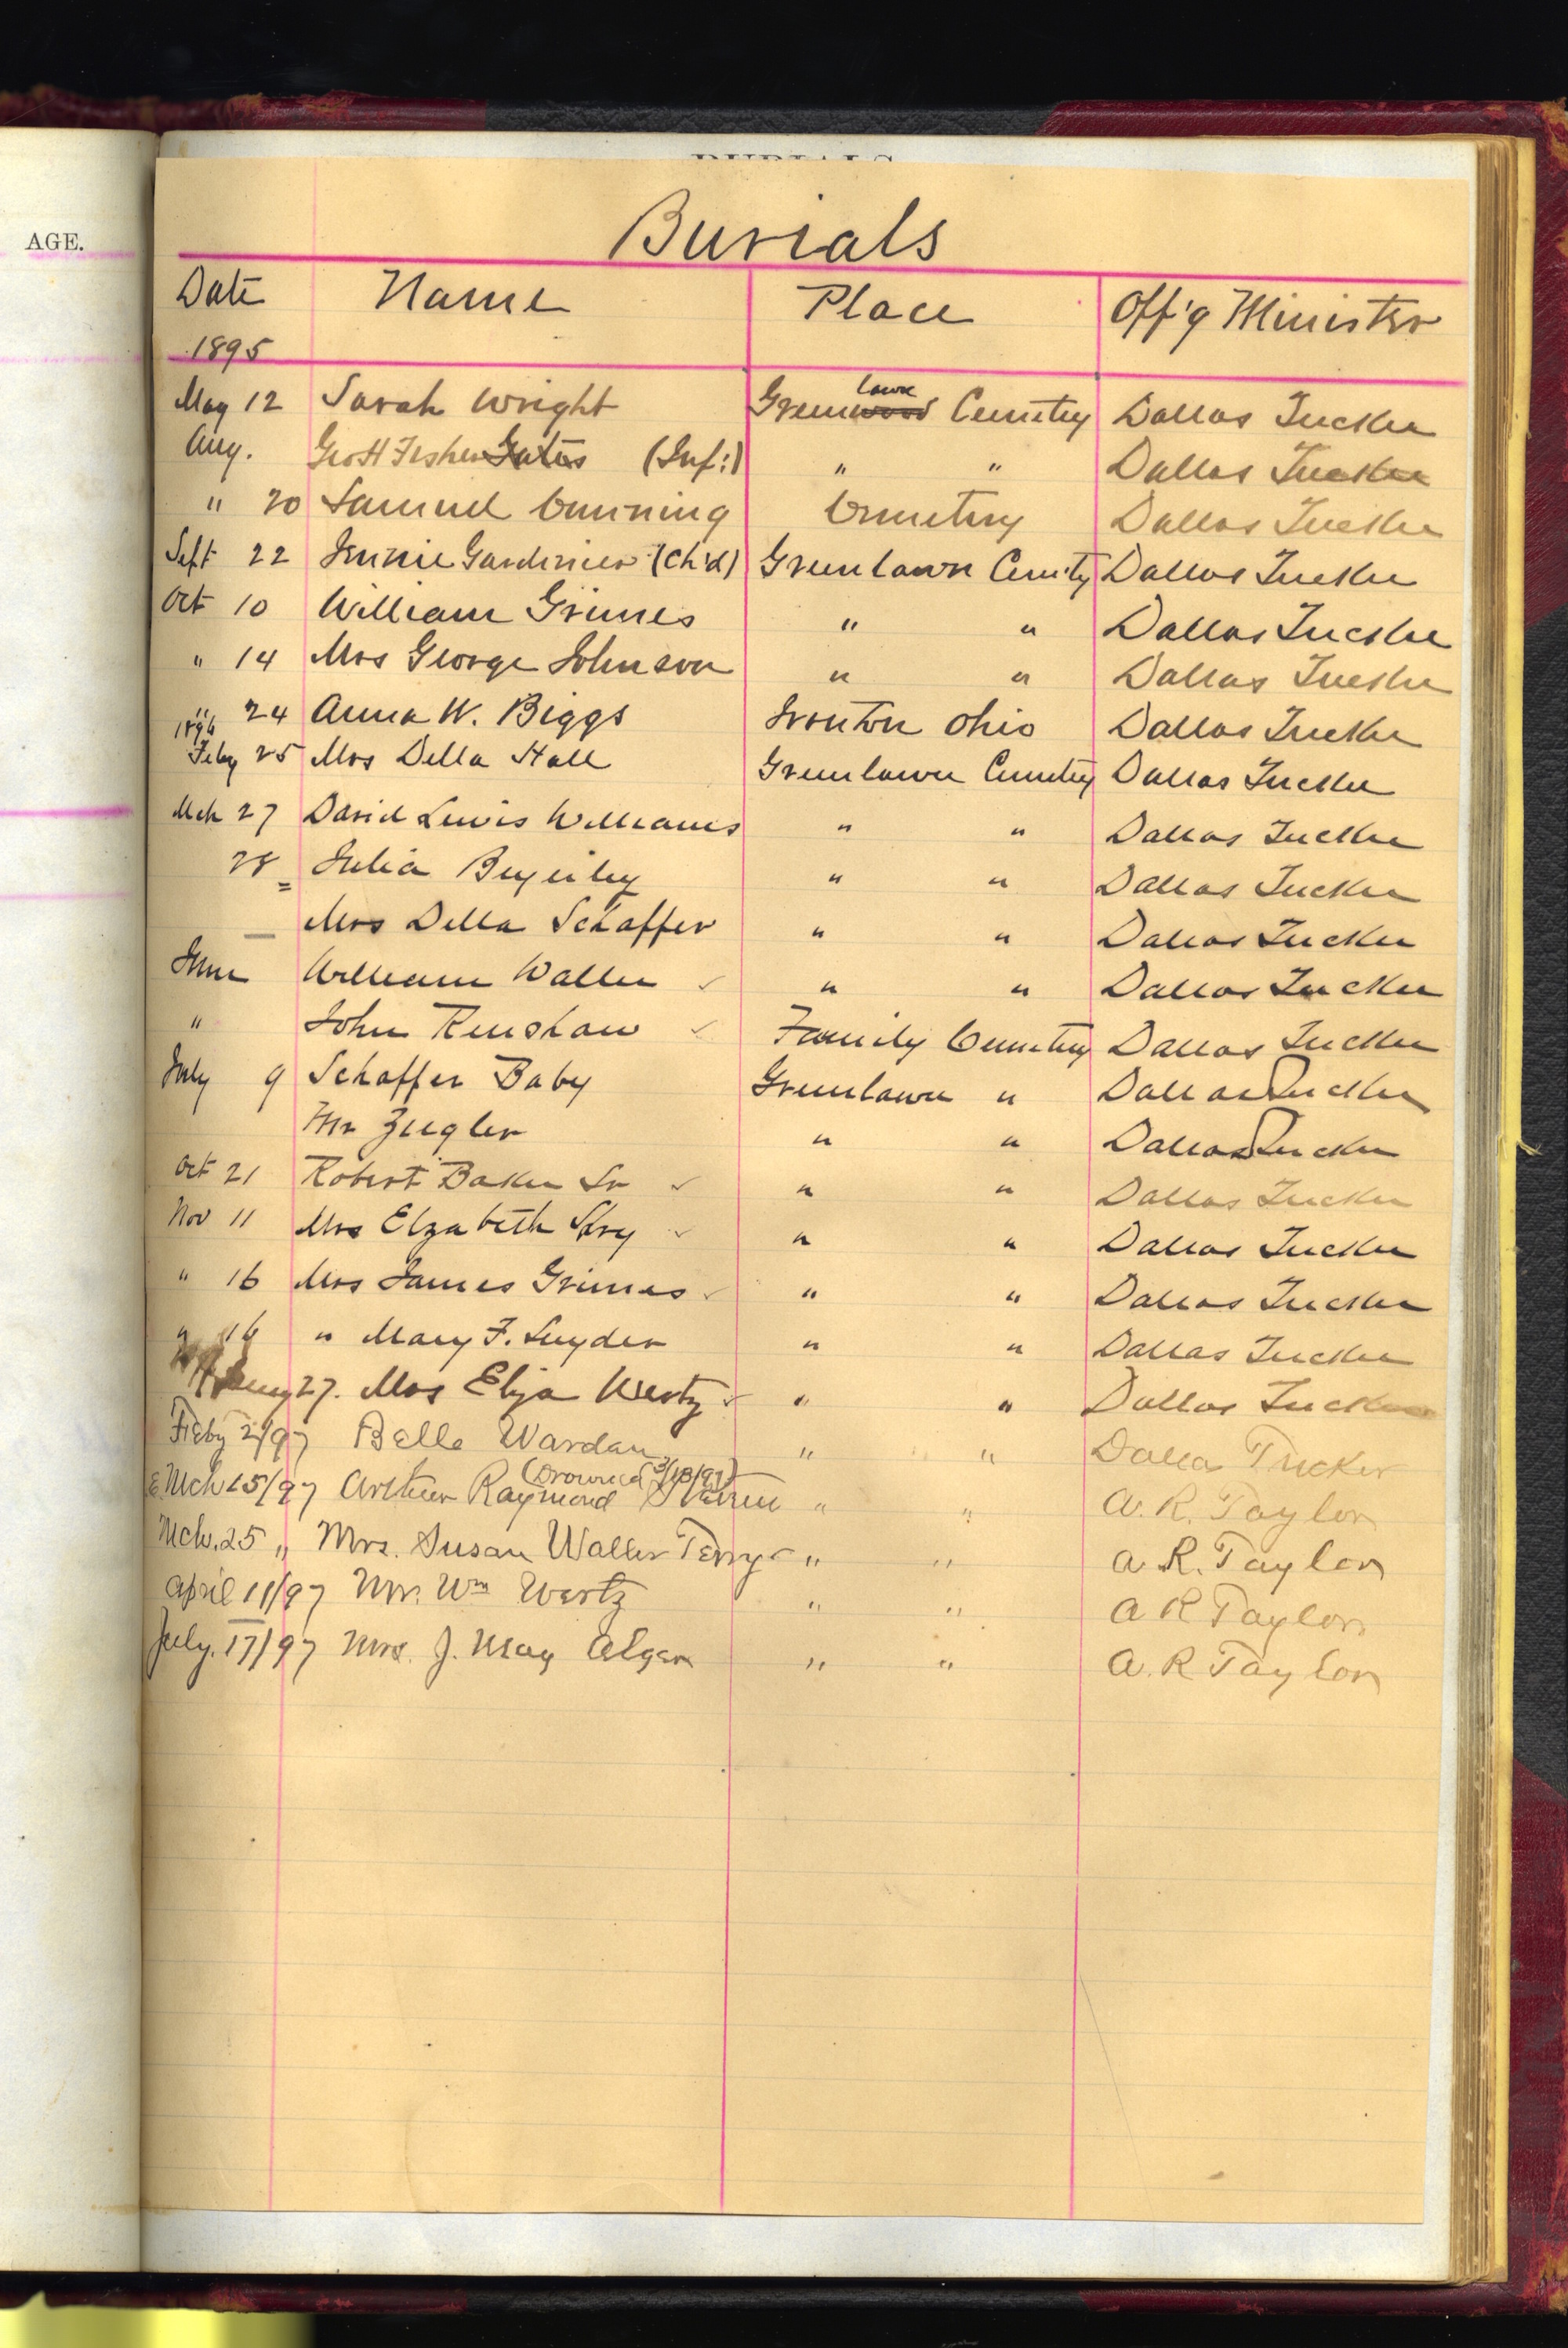 AGE.
BURIALS
Burials
Date Name Place Off'g Minister
1895
May 12 Sarah Wright Greenwood lawn Cemetry Dallas Tucker
Aug. Geo H Fisher Gates (Inf:) " " Dallas Tucker
" 20 Samuel Cunning Cemetery Dallas Tucker
Sept 22 Jennie Gardinier (Ch'd) Greenlawn Cem'ty Dallas Tucker
Oct 10 William Grimes " " Dallas Tucker
" 14 Mrs George Johnson " " Dallas Tucker
" 24 Anna W. Biggs Ironton Ohio Dallas Tucker
1896
Feby 25 Mrs Della Hall Greenlawn Cemetry Dallas Tucker
Mch 27 David Lewis Williams " " Dallas Tucker
28 Julia Beyerley " " Dallas Tucker
— Mrs Della Schaffer " " Dallas Tucker
June William Waller ✓ " " Dallas Tucker
" John Renshaw ✓ Family Cemetery Dallas Tucker
July 9 Schaffer Baby Greenlawn " Dallas Tucker
Mr Zeigler " " Dallas Tucker
Oct 21 Robert Baker Sr ✓ " " Dallas Tucker
Nov 11 Mrs Elzabeth ✓ " " Dallas Tucker
" 16 Mrs James Grimes ✓ " " Dallas Tucker
" 16 " Mary F. Snyder " " Dallas Tucker
27. Mrs Eliza Wertz ✓ " " Dallas Tucker
Feby 2/97 Belle Wardan " " Dallas Tucker
(Drowned 3/13/97)
Mch 15/97 Arthur Raymond " " A. R. Taylor
Mch. 25 " Mrs. Susan Waller Terry " " A R. Taylor
April 11/97 Mr. Wm Wertz " " A R Taylor
July. 17/97 Mrs. J. May Alger " " A. R Taylor